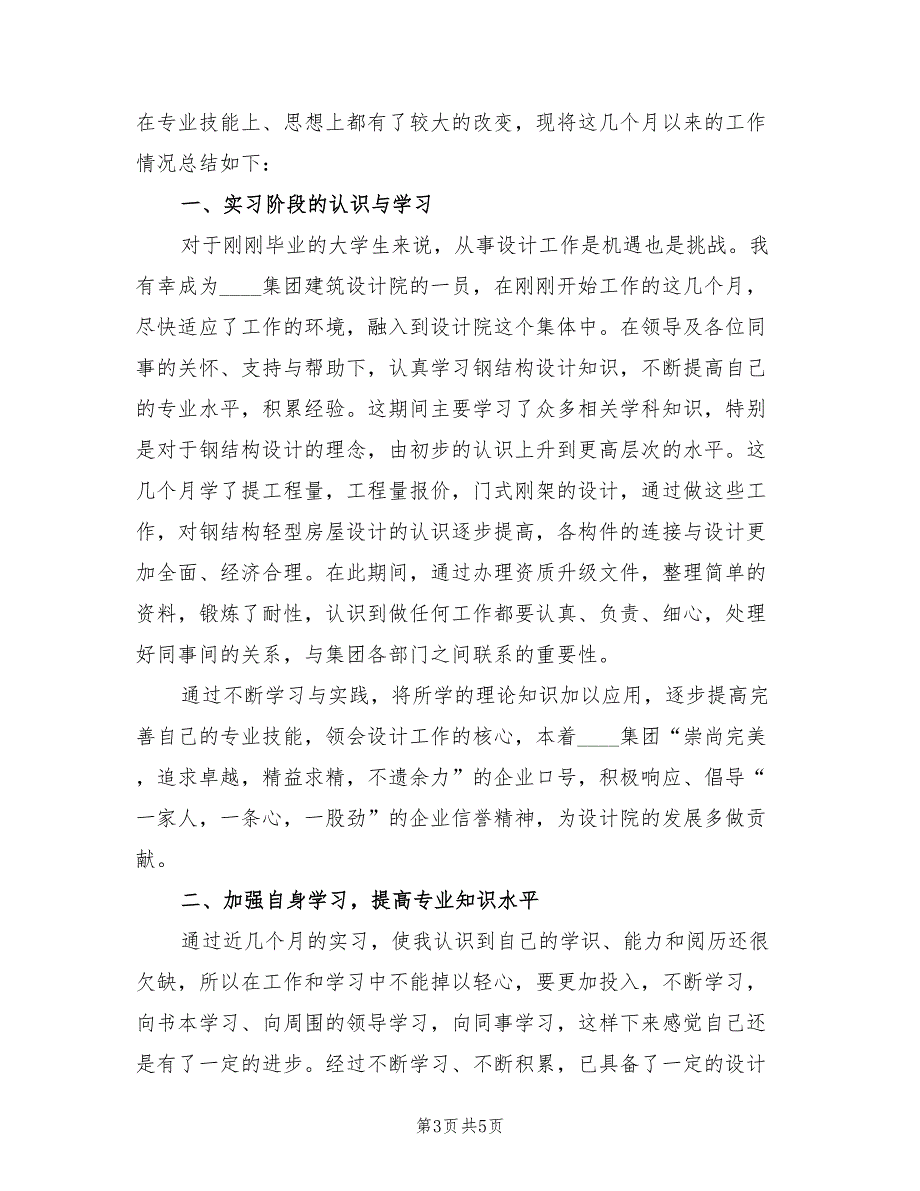 在专业技能上、思想上都有了较大的改变，现将这几个月以来的工作
情况总结如下：
一、实习阶段的认识与学习
对于刚刚毕业的大学生来说，从事设计工作是机遇也是挑战。我
有幸成为____集团建筑设计院的一员，在刚刚开始工作的这几个月，
尽快适应了工作的环境，融入到设计院这个集体中。在领导及各位同
事的关怀、支持与帮助下，认真学习钢结构设计知识，不断提高自己
的专业水平，积累经验。这期间主要学习了众多相关学科知识，特别
是对于钢结构设计的理念，由初步的认识上升到更高层次的水平。这
几个月学了提工程量，工程量报价，门式刚架的设计，通过做这些工
作，对钢结构轻型房屋设计的认识逐步提高，各构件的连接与设计更
加全面、经济合理。在此期间，通过办理资质升级文件，整理简单的
资料，锻炼了耐性，认识到做任何工作都要认真、负责、细心，处理
好同事间的关系，与集团各部门之间联系的重要性。
通过不断学习与实践，将所学的理论知识加以应用，逐步提高完
善自己的专业技能，领会设计工作的核心，本着____集团“崇尚完美
，追求卓越，精益求精，不遗余力”的企业口号，积极响应、倡导“
一家人，一条心，一股劲”的企业信誉精神，为设计院的发展多做贡
献。
二、加强自身学习，提高专业知识水平
通过近几个月的实习，使我认识到自己的学识、能力和阅历还很
欠缺，所以在工作和学习中不能掉以轻心，要更加投入，不断学习，
向书本学习、向周围的领导学习，向同事学习，这样下来感觉自己还
是有了一定的进步。经过不断学习、不断积累，已具备了一定的设计
第3页共5页